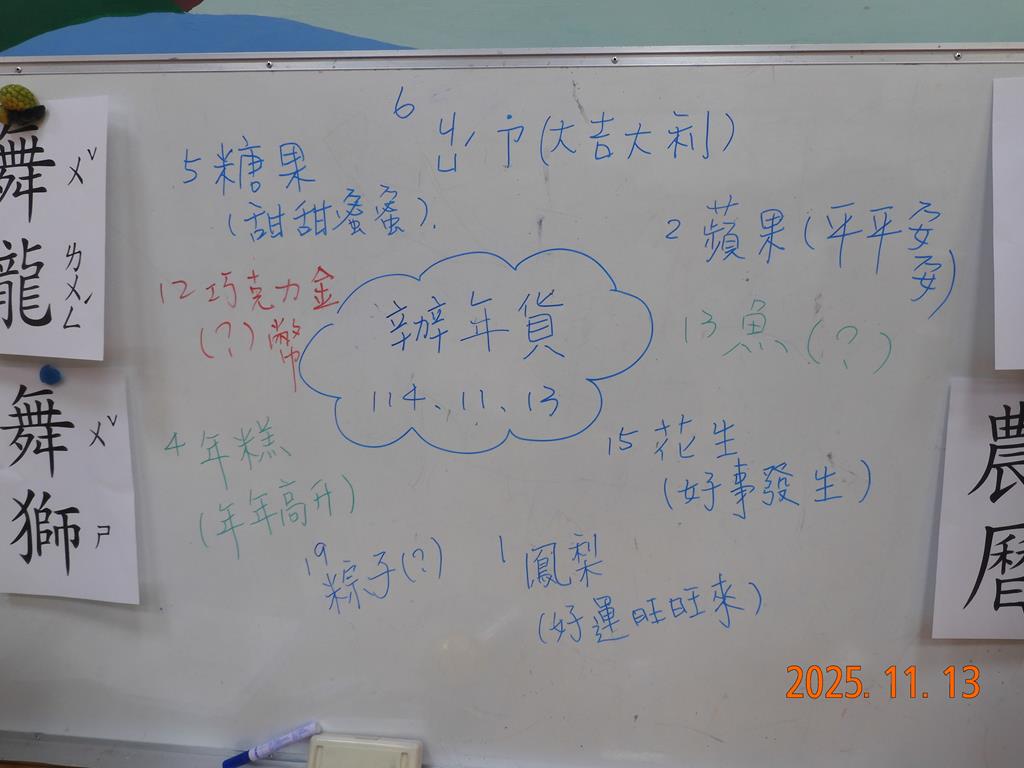 舞ㄨˇ
龍ㄌㄨㄥˊ
舞ㄨˇ
獅ㄕ
6 ㄐㄩˊ ˙ㄗ(大吉大利)
5 糖果
(甜甜蜜蜜).
2 蘋果(平平安安)
12 巧克力金
(?) 幣
辦年貨
114、11、13
13 魚(?)
4 年糕
(年年高升)
15 花生
(好事發生)
19 粽子(?)
1 鳳梨
(好運旺旺來)
農
曆
2025. 11. 13